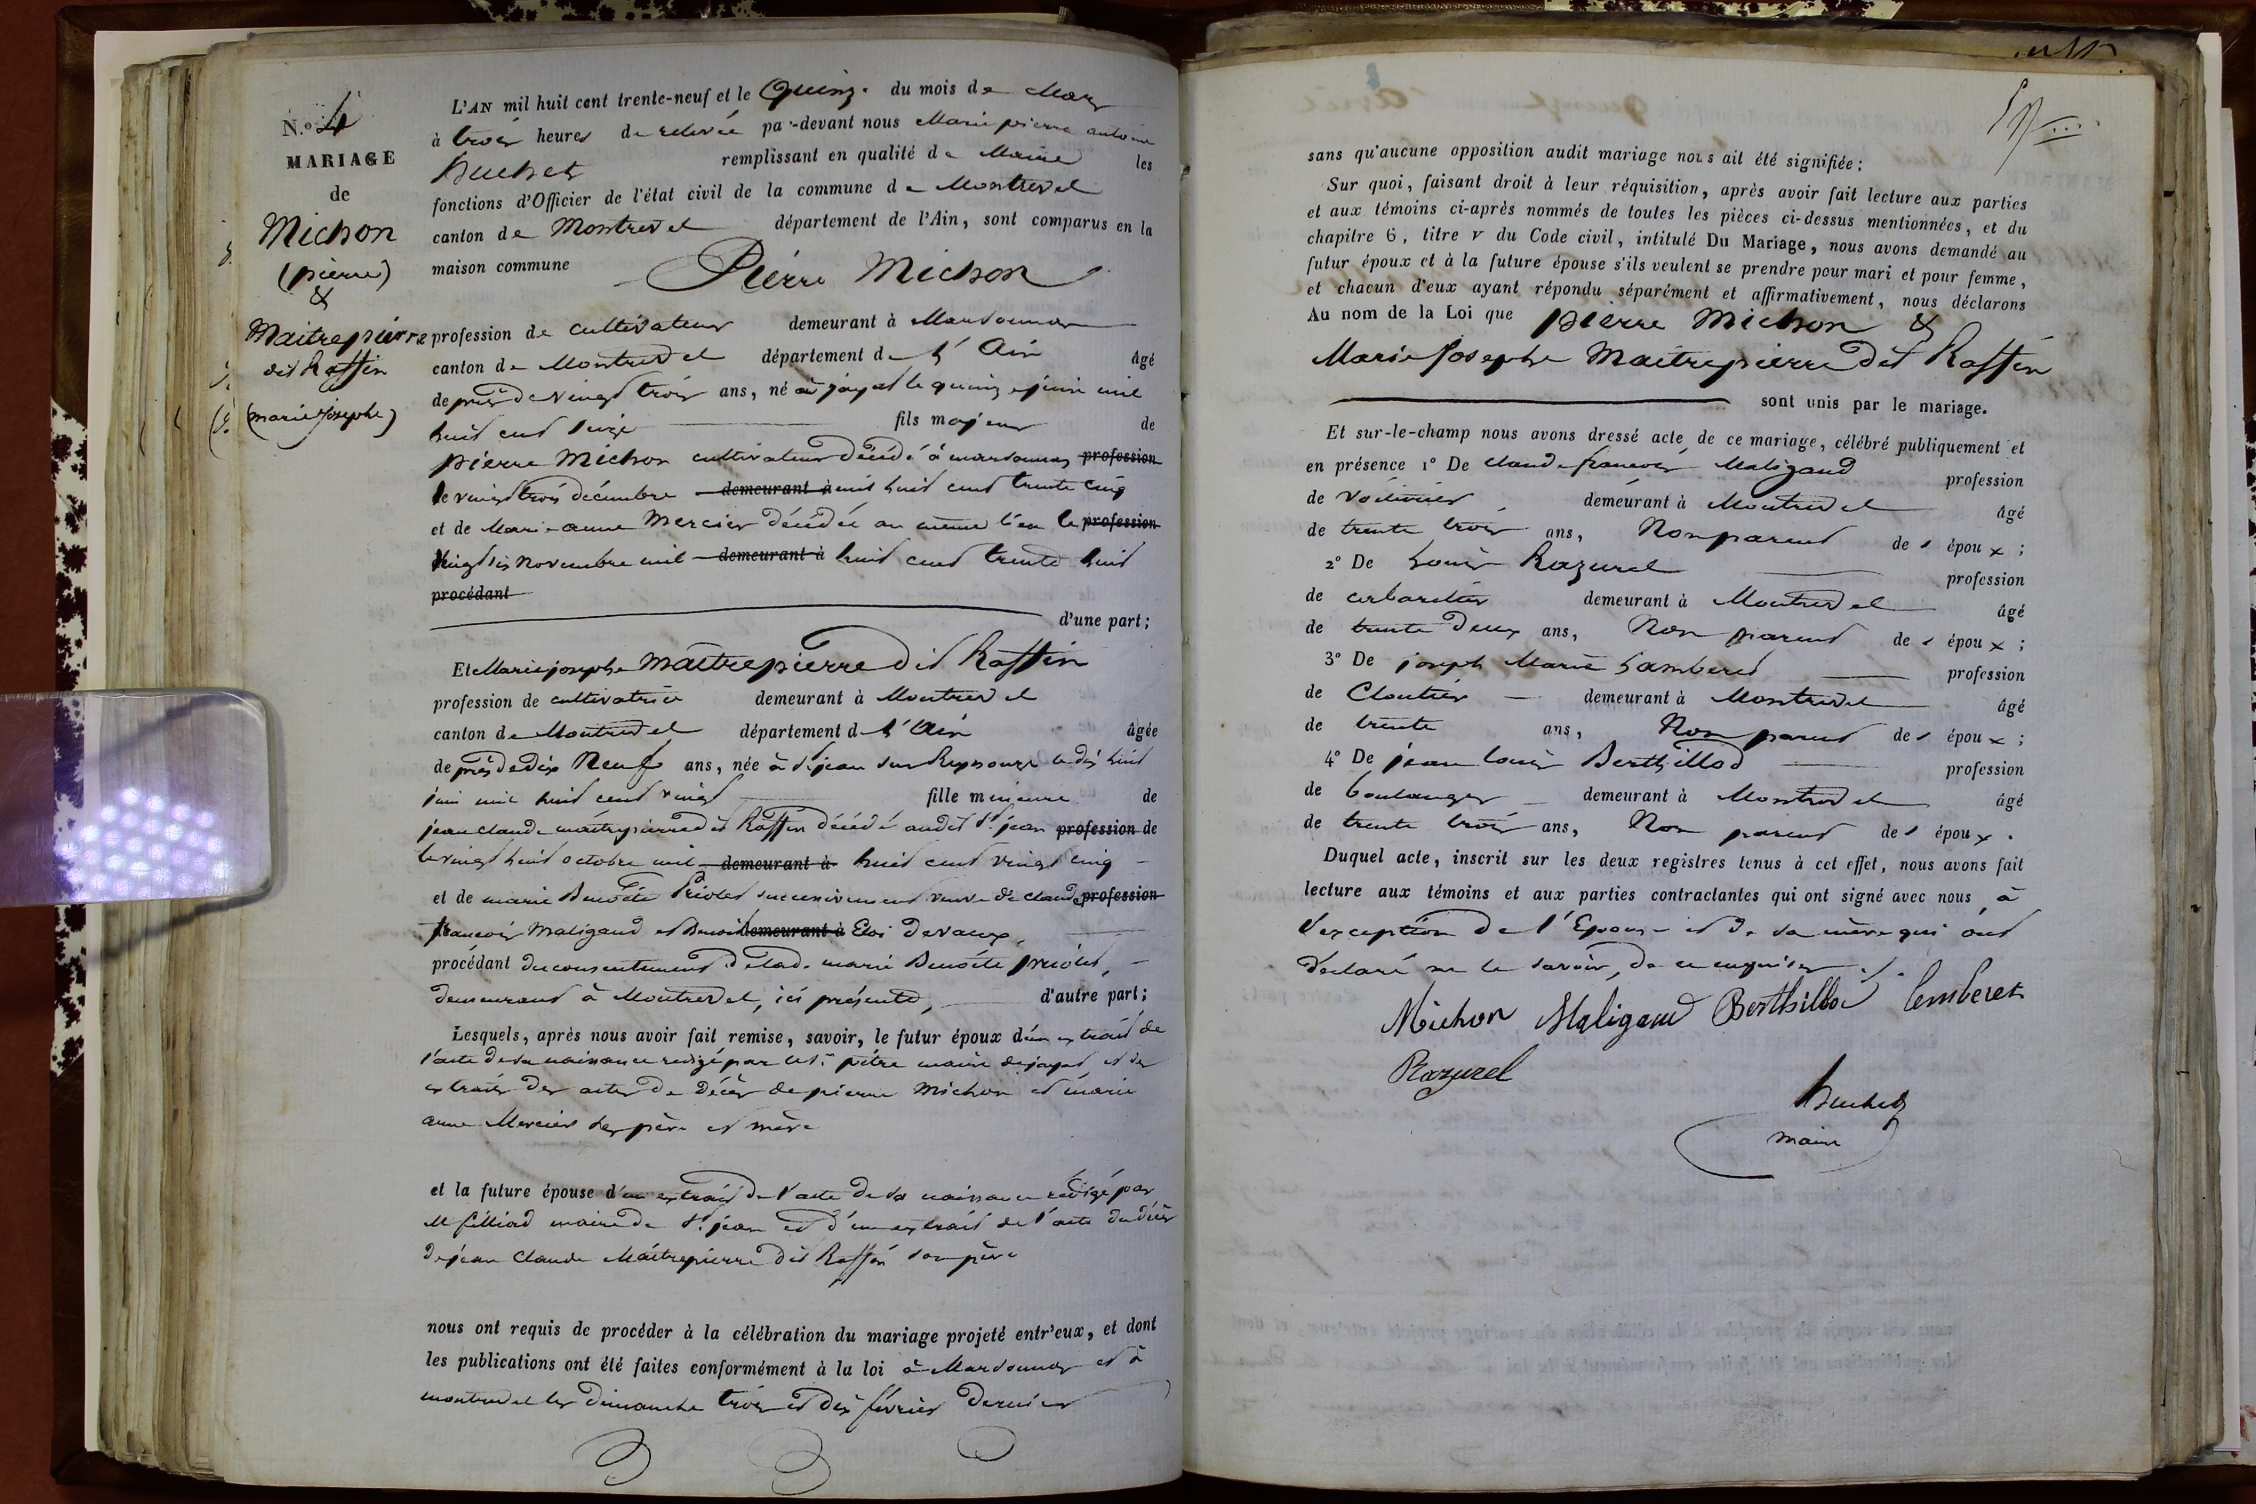 N.o 4
MARIAGE
de
Michon
(pierre)
&
Maitrepierre
dit Raffin
(marie Josephe)
L'AN mil huit cent trente-neuf et le Quinze du mois de Mars
à trois heures de relevée par-devant nous Marie pierre antoine
Buchet remplissant en qualité de Maire les
fonctions d'Officier de l'état civil de la commune de Montrevel
canton de Montrevel département de l'Ain, sont comparus en la
maison commune Pierre Michon
profession de cultivateur demeurant à Marsonnas
canton de Montrevel département de l'Ain âgé
de près de vingt trois ans, né à jayat le quinze juin mil
huit cent seize fils majeur de
pierre Michon cultivateur décédé à marsonnas profession
le vingt trois décembre demeurant à mil huit cent trente cinq
et de Marie-anne Mercier décédée au même lieu le profession
vingt six Novembre mil demeurant à huit cent trente huit
procédant
d'une part;
Et Marie josephe Maitrepierre dit Raffin
profession de cultivatrice demeurant à Montrevel
canton de Montrevel département de l'Ain âgée
de près de dix Neuf ans, née à St jean sur Reyssouze le dix huit
juin mil huit cent vingt fille mineure de
jean claude maitrepierre dit Raffin décédé audit St jean profession de
le vingt huit octobre mil demeurant à huit cent vingt cinq
et de marie Benoite Priolet successivement veuve de claude profession
francois Maligaud et Benoit demeurant à Eloi Devaux,
procédant du consentement de lad. marie Benoite priolet,
demeurant à Montrevel, ici présente, d'autre part;
Lesquels, après nous avoir fait remise, savoir, le futur époux d'un extrait de
l'acte de sa naissance redigé par le Sr pitre maire de jayat, et des
extraits des actes de décès de pierre Michon et marie
anne Mercier ses père et mère
et la future épouse d'un extrait de l'acte de sa naissance redigé par
M filliod maire de St jean et d'un extrait de l'acte de décès
de jean claude Maitrepierre dit Raffin son père
nous ont requis de procéder à la célébration du mariage projeté entr'eux, et dont
les publications ont été faites conformément à la loi à Marsonnas et à
montrevel les dimanche trois et dix février dernier
sans qu'aucune opposition audit mariage nous ait été signifiée:
Sur quoi, faisant droit à leur réquisition, après avoir fait lecture aux parties
et aux témoins ci-après nommés de toutes les pièces ci-dessus mentionnées, et du
chapitre 6, titre V du Code civil, intitulé Du Mariage, nous avons demandé au
futur époux et à la future épouse s'ils veulent se prendre pour mari et pour femme,
et chacun d'eux ayant répondu séparément et affirmativement, nous déclarons
Au nom de la Loi que pierre Michon &
Marie Josephe Maitrepierre dit Raffin
sont unis par le mariage.
Et sur-le-champ nous avons dressé acte de ce mariage, célébré publiquement et
en présence 1° De claude francois Maligaud profession
de voiturier demeurant à Montrevel âgé
de trente trois ans, Non parent des époux;
2° De Louis Razurel profession
de cabaretier demeurant à Montrevel âgé
de trente deux ans, Non parent des époux;
3° De joseph Marie Lamberet profession
de Cloutier demeurant à Montrevel âgé
de trente ans, Non parent des époux;
4° De jean louis Berthillod profession
de boulanger demeurant à Montrevel âgé
de trente trois ans, Non parent des époux.
Duquel acte, inscrit sur les deux registres tenus à cet effet, nous avons fait
lecture aux témoins et aux parties contractantes qui ont signé avec nous, à
l'exception de l'Epouse et de sa mère qui ont
déclaré ne le savoir, de ce enquises
Michon Maligaud Berthillod lemberet
Razurel
Buchet
maire